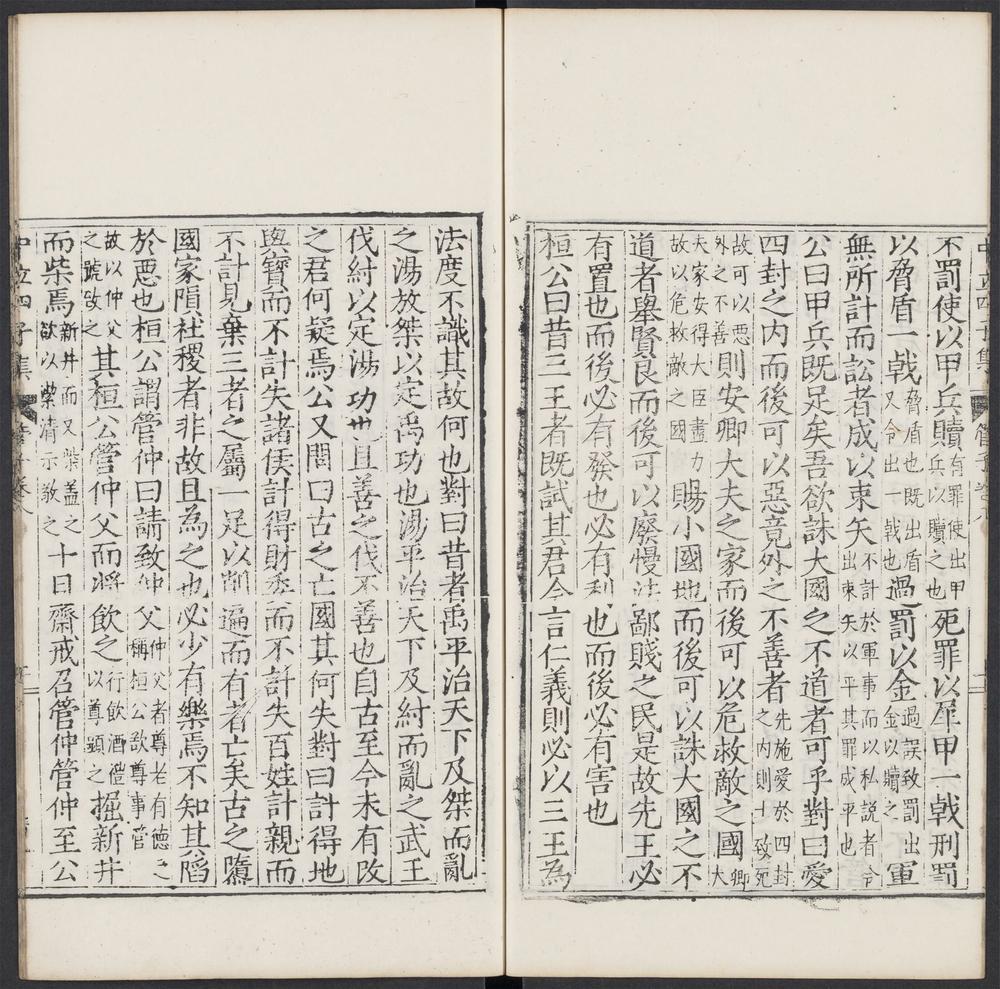 中立四子集 管子卷八 十二
不罰使以甲兵贖有罪使出甲兵以贖之也死罪以犀甲一戟刑罰
以脅盾一戟脅盾也既出盾又令出一戟也過罰以金過誤致罰出金以贖之軍
無所計而訟者成以束矢不計於軍事而以私説者令出束矢以平其罪成平也
公曰甲兵既足矣吾欲誅大國之不道者可乎對曰愛
四封之內而後可以惡竟外之不善者先施愛於四封之內則士致死
故可以惡外之不善則安卿大夫之家而後可以危救敵之國卿大
夫家安得大臣盡力故以危救敵之國賜小國地而後可以誅大國之不
道者舉賢良而後可以廢慢法鄙賤之民是故先王必
有置也而後必有廢也必有利也而後必有害也
桓公曰昔三王者既試其君今言仁義則必以三王為
法度不識其故何也對曰昔者禹平治天下及桀而亂
之湯放桀以定禹功也湯平治天下及紂而亂之武王
伐紂以定湯功也且善之伐不善也自古至今未有改
之君何疑焉公又問曰古之亡國其何失對曰計得地
與寶而不計失諸侯計得財委而不計失百姓計親而
不計見棄三者之屬一足以削遍而有者亡矣古之隳
國家隕社稷者非故且為之也必少有樂焉不知其陷
於惡也桓公謂管仲曰請致仲父仲父者尊老有德之稱桓公欲尊事管
故以仲父之號致之其桓公管仲父而將飲之行飲酒禮以尊顯之掘新井
而柴焉新井而又柴蓋之欲以絜清示敬之十日齋戒召管仲管仲至公
中立四子集 管子卷八